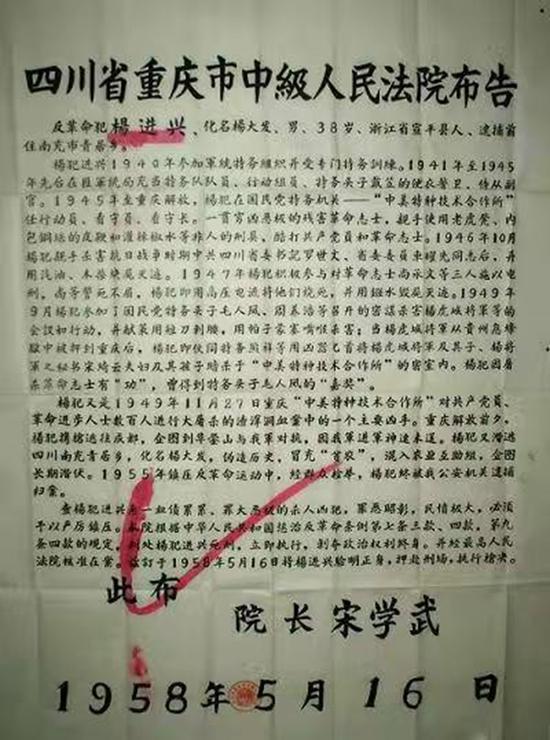 四川省重庆市中級人民法院布告
反革命犯楊进兴、化名楊大发、男、38岁、浙江省宣平县人、逮捕前
住南充市青居乡。
楊犯进兴1940年参加軍統特务組织并受专门特务訓練。1941年至1945
年先后在匪軍統局充当特务队队員、行动組員、特务头子戴笠的便衣警卫、侍从副
官。1945年至重庆解放，楊犯在国民党特务机关——“中美特种技术合作所”
任行动員、看守員、看守长。一貫穷凶恶极的残害革命志士，親手使用老虎凳、内
包鋼絲的皮鞭和灌辣椒水等非人的刑具，酷打共产党員和革命志士。1946年10月
楊犯親手杀害抗日战爭时期中共四川省委书記罗世文、省委委員車耀先同志后，并
用汽油、木柴焚屍灭迹。1947年楊犯积极参与对革命志士尚承文等三人施以电
刑，尚等誓死不屈，楊犯即用高压电流将他们烧死，并用鏹水毁屍灭迹。1949年
9月楊犯参加了国民党特务头子毛人凤、周养浩等召开的密謀杀害楊虎城将軍等的
会议和行动，并献策用短刀刺腰，用帕子蒙嘴喉杀害；当楊虎城将軍从貴州息烽
獄中被押到重庆后，楊犯即伙同特务熊祥等用凶器匕首将楊虎城将軍及其子、楊将
軍之秘书宋绮云夫妇及其孩子暗杀于“中美特种技术合作所”的密室内。楊犯因屠
杀革命志士有“功”，曾得到特务头子毛人凤的“嘉奖”。
楊犯又是1949年11月27日重庆“中美特种技术合作所”对共产党員、
革命进步人士数百人进行大屠杀的渣滓洞血案中的一个主要凶手。重庆解放前夕，
楊犯携槍逃往成都，企图到华蓥山与我軍对抗，因我軍进軍神速未逞。楊犯又潛逃
四川南充青居乡，化名楊大发，伪造历史，冒充“貧农”，混入农业互助組，企图
长期潛伏。1955年镇压反革命运动中，經群众检举，楊犯終被我公安机关逮捕
归案。
查楊犯进兴是一血债累累、罪大恶极的杀人凶犯，罪恶昭彰，民憤极大，必須
予以严厉镇压。本院根据中华人民共和国惩治反革命条例第七条三款、四款，第九
条四款的規定，判处楊犯进兴死刑，立即执行，剥夺政治权利終身。并經最高人民
法院核准在案。兹訂于1958年5月16日将楊进兴驗明正身，押赴刑场，执行槍决。
此布
院长宋学武
1958年5月16日